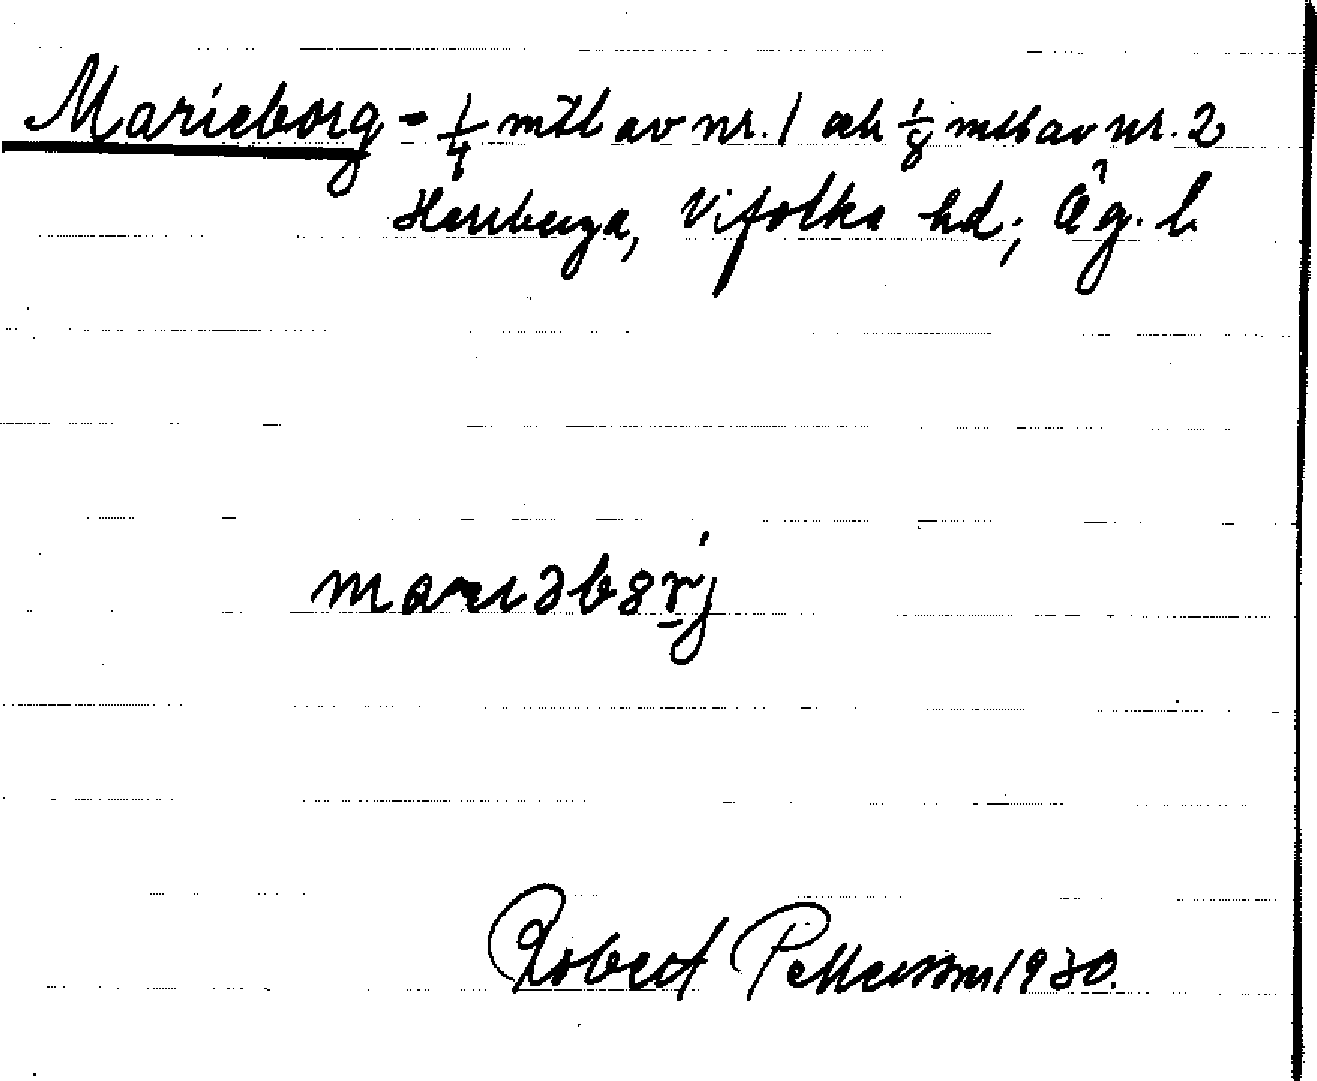 Marieborg - 1/4 mtl av nr. 1 och 1/8 mtl av nr. 2
Herrberga, Vifolka hd; Ög. l.
mariəb8rj
Robert Pettersson 1930.